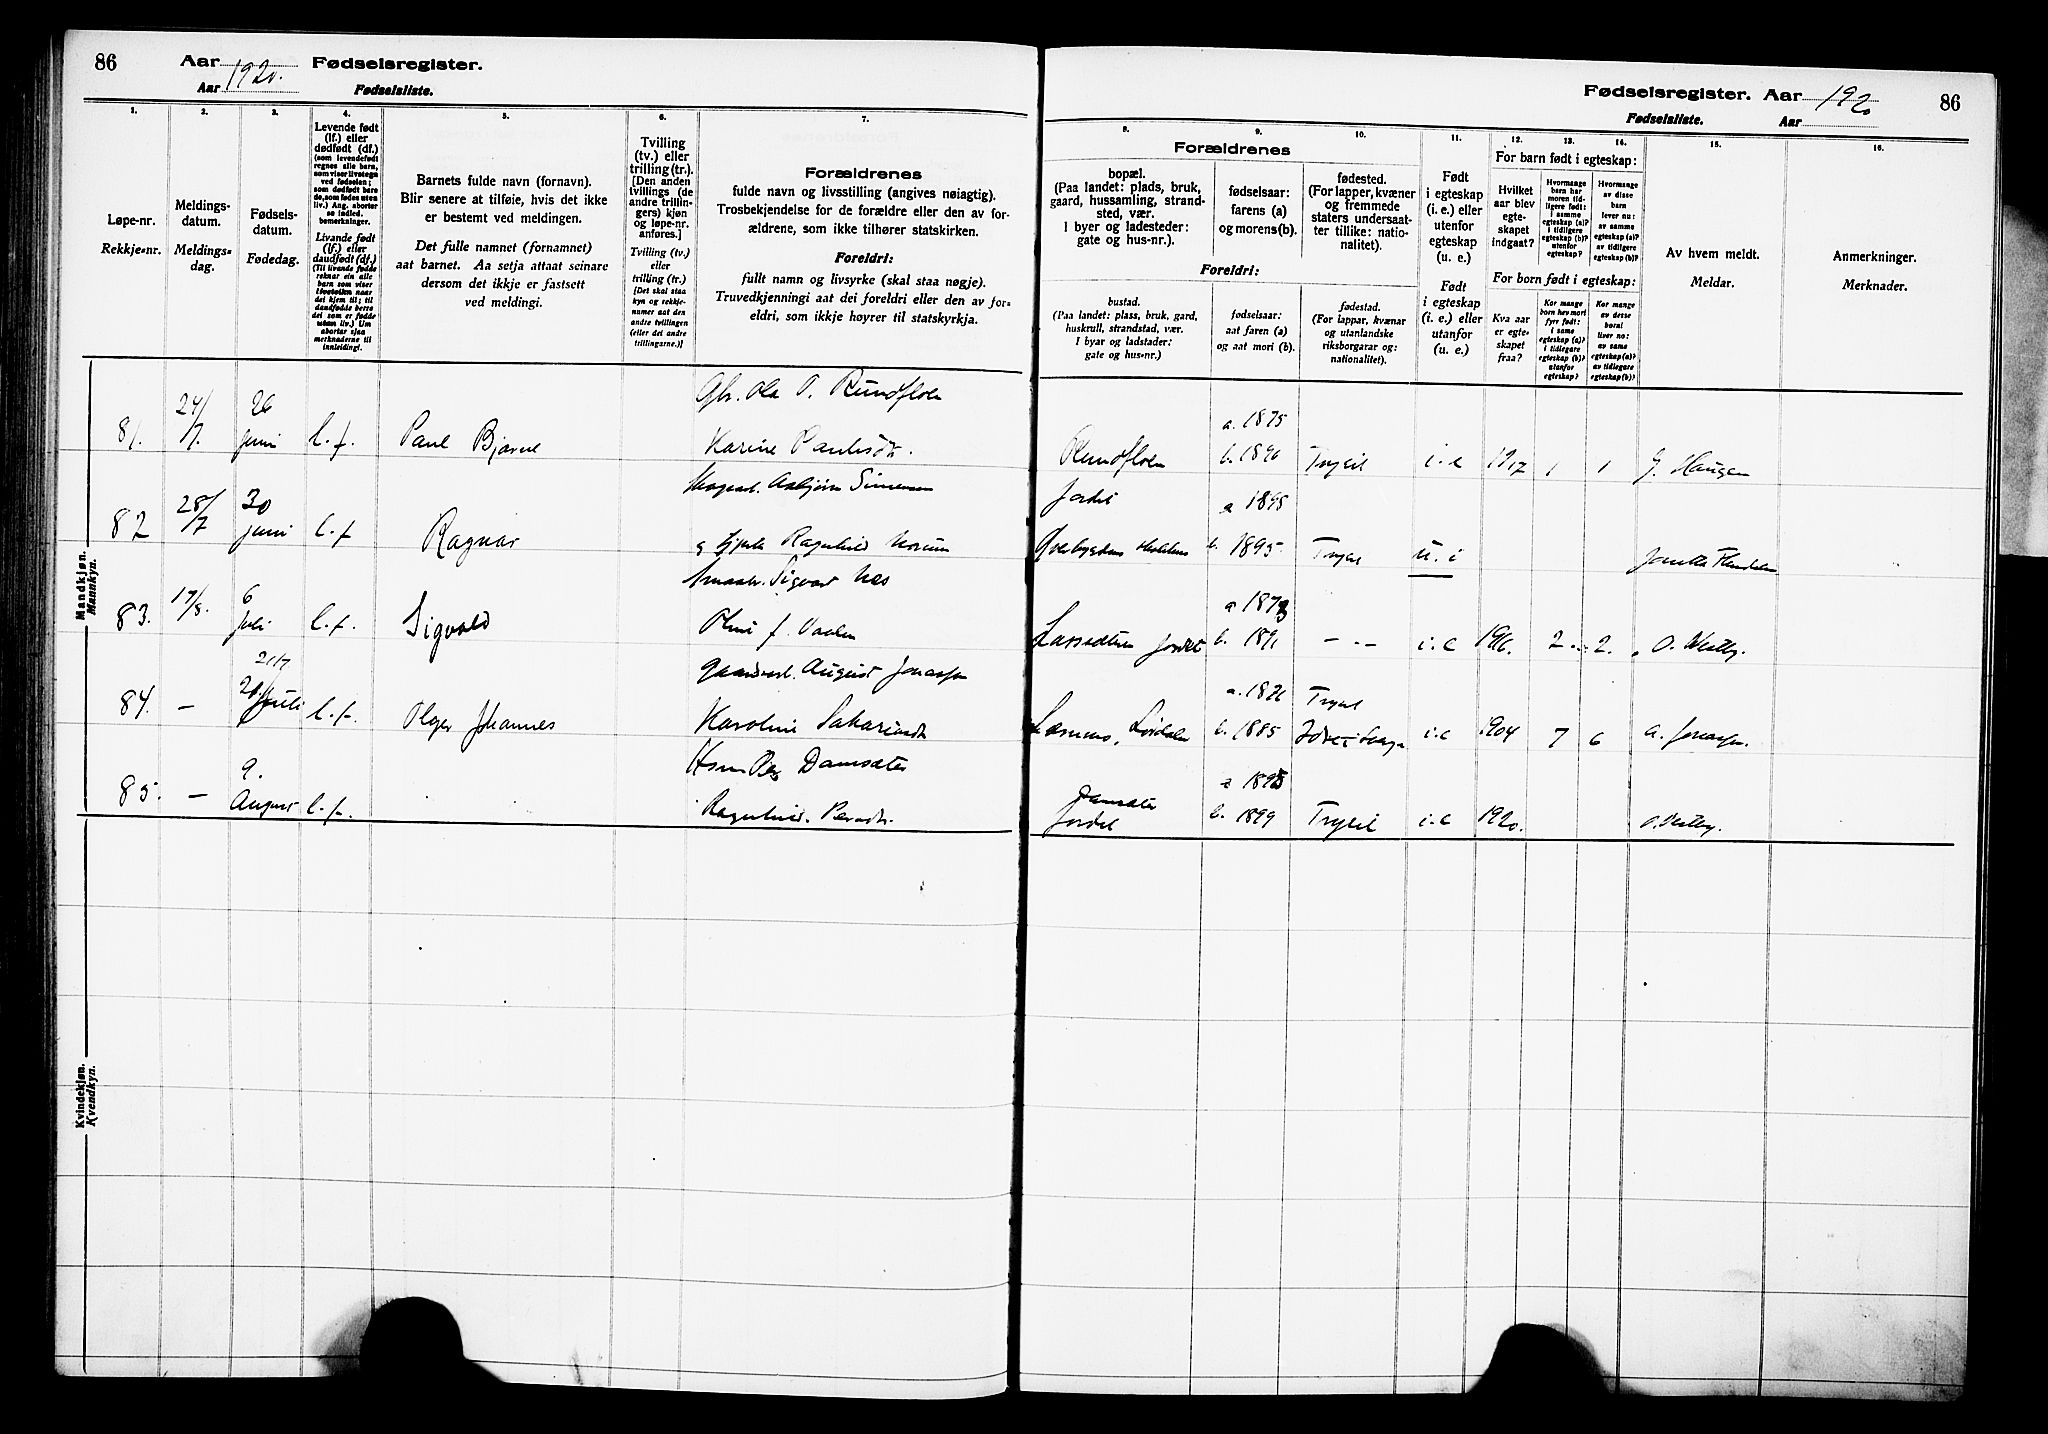 86
Aar 1920.
Fødselsregister.
Aar
Fødselsliste.
1.
Løpe-nr.
Rekkje-nr.
2.
Meldings-
datum.
Meldings-
dag.
3.
Fødsels-
datum.
Fødedag.
4.
Levende født
(lf.) eller
dødfødt (df.)
(som levendefødt
regnes alle barn,
som viser livstegn
ved fødselen;
som dødfødt bare
de, som fødes uten
liv.) Ang. aborter
se indled.
bemerkninger.
Livande født
(lf.) eller
daudfødt (df.)
(Til livande fødde
reknar ein alle
barn som viser
livsteikn naar
dei kjem til; til
daudfødde berre
dei som er fødde
utan liv.) Um
abortar sjaa
merknaderne til
innleidingi.
5.
Barnets fulde navn (fornavn).
Blir senere at tilføie, hvis det ikke
er bestemt ved meldingen.
Det fulle namnet (fornamnet)
aat barnet. Aa setja attaat seinare
dersom det ikkje er fastsett
ved meldingi.
6.
Tvilling
(tv.) eller
trilling (tr.).
[Den anden
tvillings (de
andre trillin-
gers) kjøn
og løpe-nr.
anføres.]
Tvilling (tv.)
eller
trilling (tr.)
[Det skal staa
kyn og rekkje-
numer aat den
andre tvillingen
(eller dei andre
trillingarne.)]
7.
Forældrenes
fulde navn og livsstilling (angives nøiagtig).
Trosbekjendelse for de forældre eller den av for-
ældrene, som ikke tilhører statskirken.
Foreldri:
fullt namn og livsyrke (skal staa nøgje).
Truvedkjenningi aat dei foreldri eller den av for-
eldri, som ikkje høyrer til statskyrkja.
Mandkjøn.
Mannkyn.
81.
24/
7.
26
juni
l. f.
Paul Bjarne
Gbr. Ola P. Rundfloen
Karine Paulsdtr.
82
28/
7
30
juni
l. f
Ragnar
Asbjørn Simensen
Ragnhild
83.
17/8.
6
Juli
l. f.
Sigvald
Sigvart Næs
84.
—
21/7
Juli
l. f.
Olger Johannes
August Jonassen
Karoline
85.
—
9.
August
l. f.
Damsæter
Ragnhild
Kvindekjøn.
Kvendkyn.
Fødselsregister. Aar 1920
86
Fødselsliste.
Aar
Forældrenes
8.
bopæl.
(Paa landet: plads, bruk,
gaard, hussamling, strand-
sted, vær.
I byer og ladesteder:
gate og hus-nr.).
9.
fødselsaar:
farens (a)
og morens (b).
10.
fødested.
(For lapper, kvæner
og fremmede
staters undersaat-
ter tillike: natio-
nalitet).
Foreldri:
bustad.
(Paa landet: plass, bruk, gard,
huskrull, strandstad, vær.
I byar og ladstader:
gate og hus-nr.)
fødselsaar:
aat faren (a)
og aat mori (b).
fødestad.
(For lappar, kvænar
og utanlandske
riksborgarar og:
nationalitet).
11.
Født
i egteskap
(i. e.) eller
utenfor
egteskap
(u. e.)
Født
i egteskap
(i. e.) eller
utanfor
(u. e.)
12.
13.
14.
For barn født i egteskap:
Hvilket
aar blev
egte-
skapet
indgaat?
Hvormange
barn har
moren tid-
ligere født:
i samme
egteskap (a)?
i tidligere
egteskap (b)?
utenfor
egteskap?
Hvormange
av disse
barn
lever nu:
av samme
egteskap (a)?
av tidligere
egteskap (b)?
For born født i egteskap:
Kva aar
er egte-
skapet
fraa?
Kor mange
born hev mori
fyrr født:
i same
egteskap (a)?
i tidlegare
egteskap (b)?
utanfor
egteskap?
Kor mange
av desse
born
liver no:
av same
egteskap (a)?
av tidlegare
egteskap (b)?
15.
Av hvem meldt.
Meldar.
16.
Anmerkninger.
Merknader.
Rundfloen
a. 1875
b. 1896
Trysil
i. e
1917
1
1
G. Haugen
Jordet
a 1898
b. 1895.
Trysil
u. i
b. 1891
— " —
i. e
1916.
2
2.
O. Westby.
Trysil
b. 1885
i. e
1904
7
6
A. Jonassen.
Damsæter
Jordet
b. 1899
Trysil
i. e
1920.
O. Vestby.